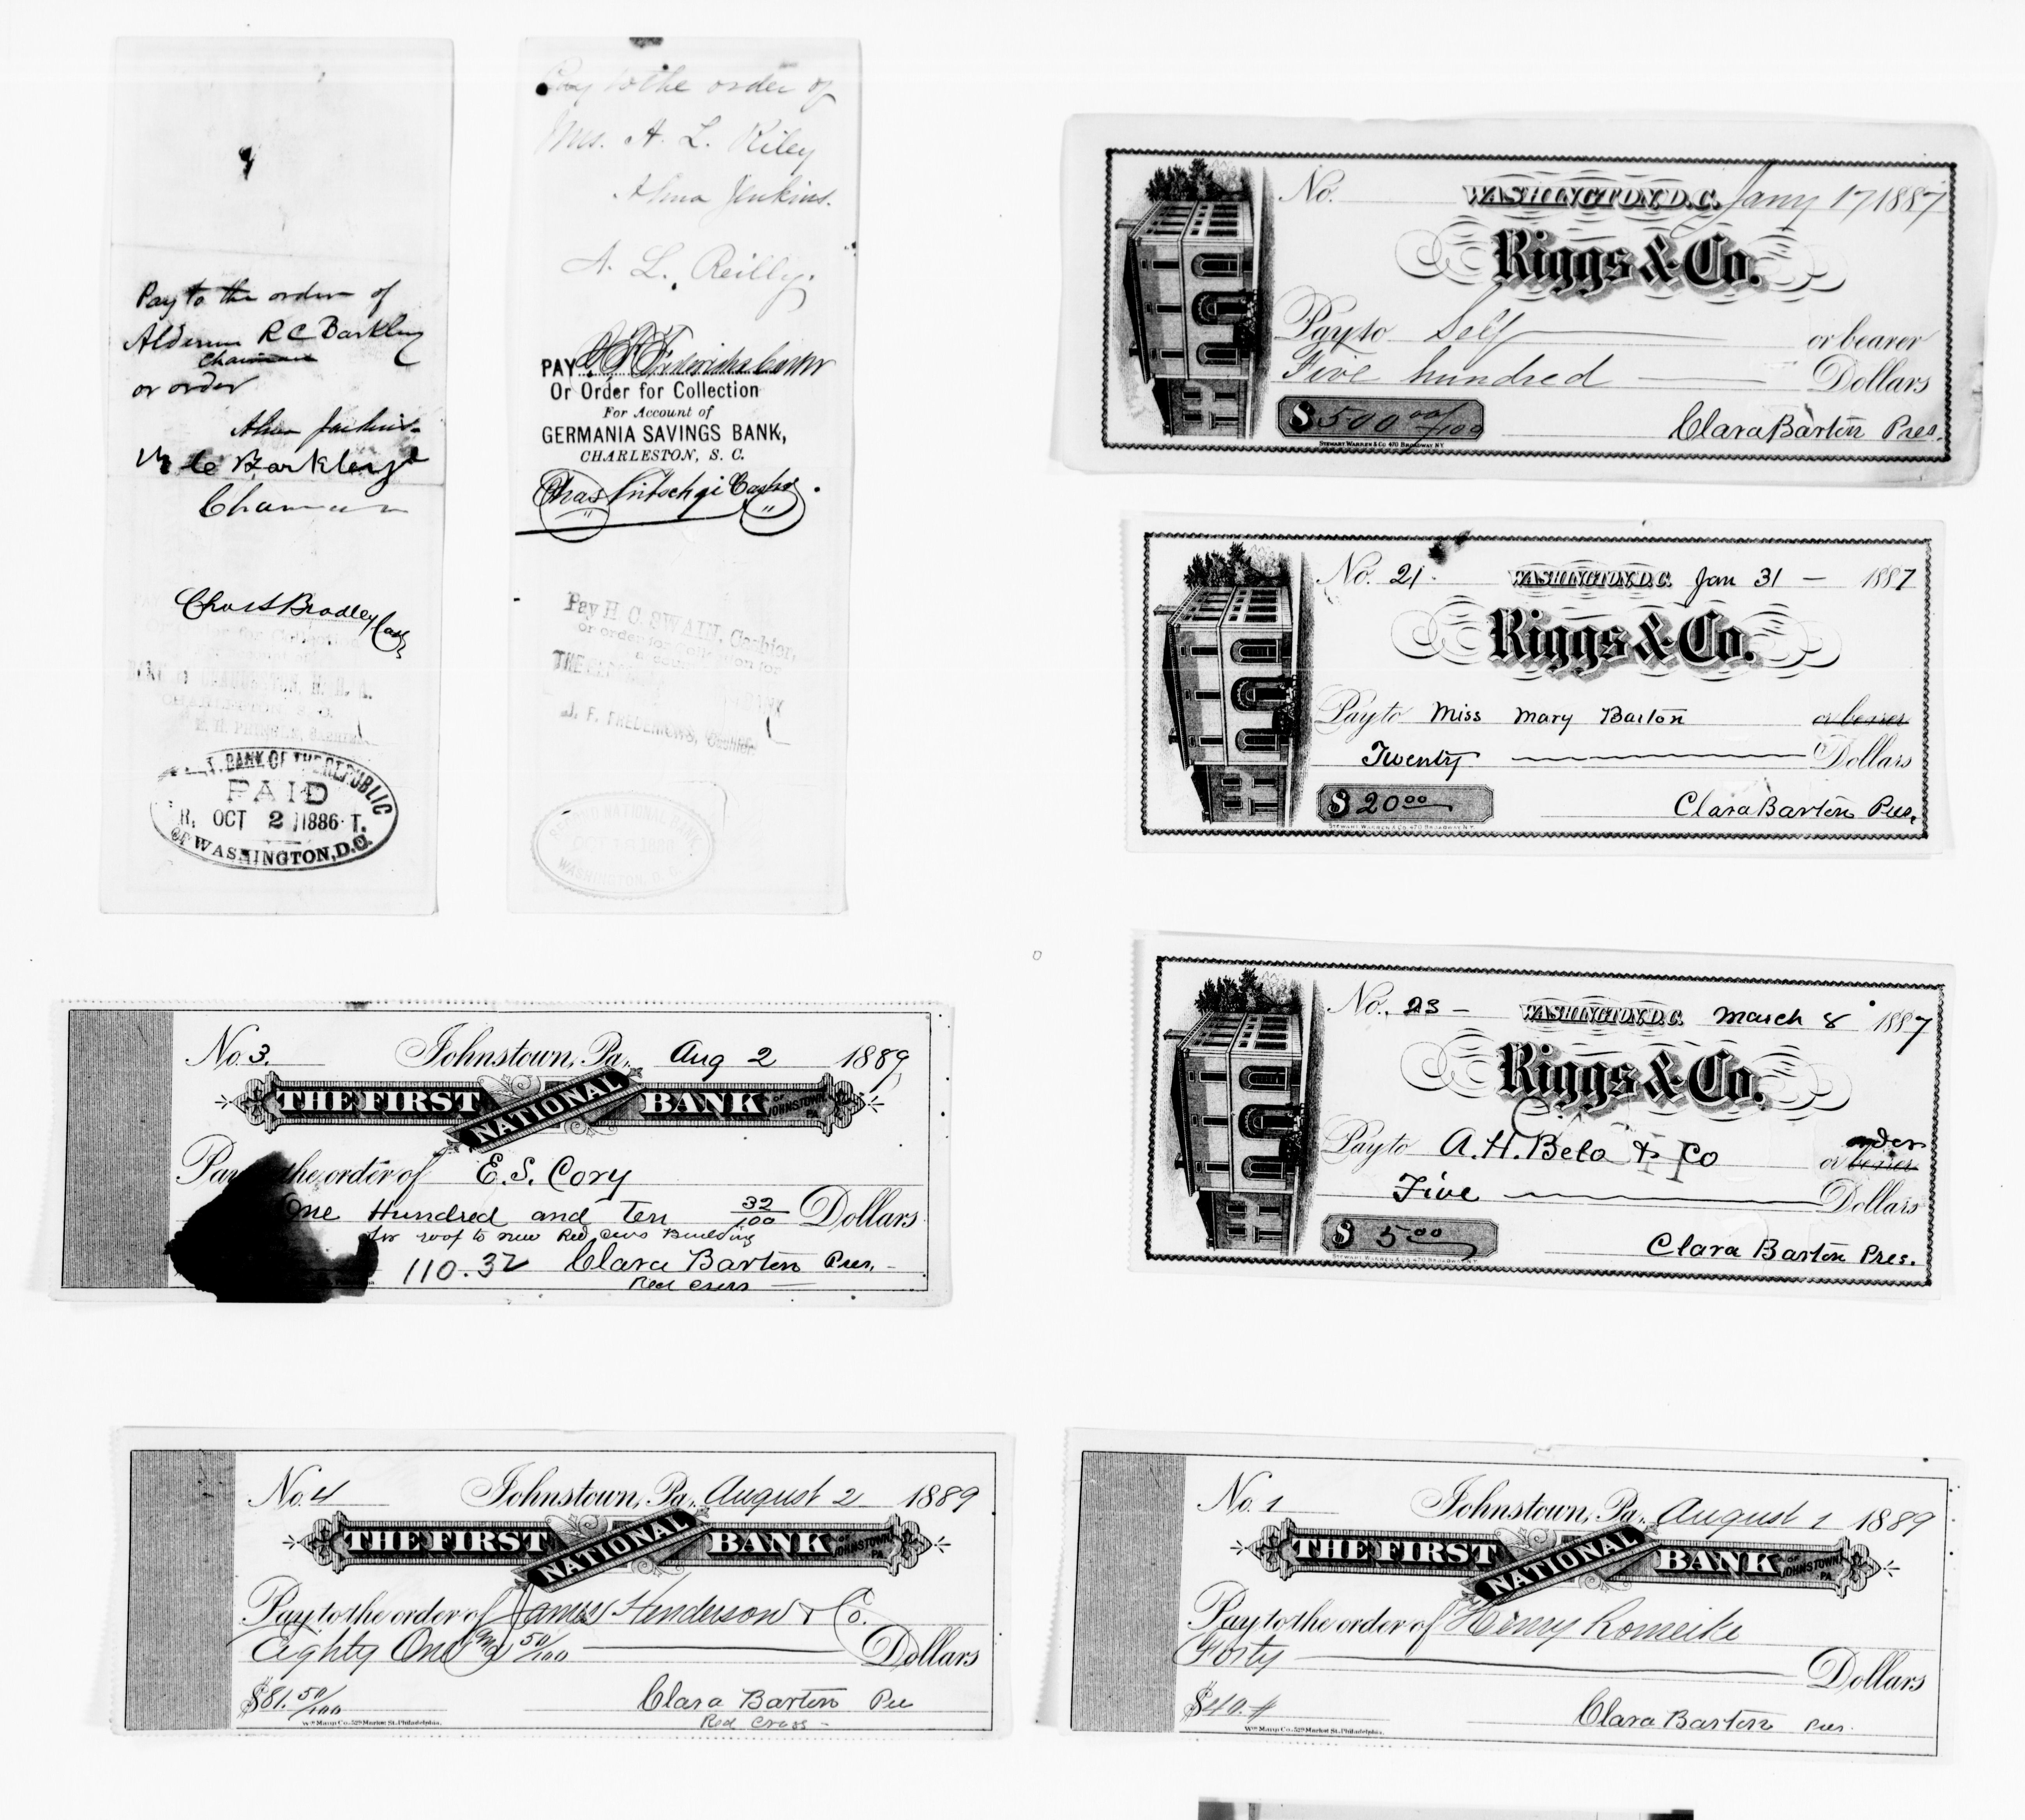 Pay to the order of
Alderman R C Barkley
Chairman
or order
Alma Jenkins
R C Barkley
Chairman
Chas S Bradley Cas
CHARLESTON, S. C.
E. H. PRINGLE, CASHIER
BANK OF THE REPUBLIC
PAID
OCT 2 1886
OF WASHINGTON, D.C.
Pay to the order of
Mrs. A. L. Riley
Alma Jenkins.
A. L. Reilly.
PAY J. F. Fredericks Cashier
Or Order for Collection
For Account of
GERMANIA SAVINGS BANK,
CHARLESTON, S. C.
Chas Litschgi Cashr.
Pay H. C. SWAIN, Cashier,
or order for collection for
account
THE
BANK
J. F. FREDERICKS, Cashier
SECOND NATIONAL BANK
OCT 1886
WASHINGTON, D. C.
No. WASHINGTON, D.C. Jany 17 1887
Riggs & Co.
Pay to Self or bearer
Five hundred Dollars
$ 500 00/100
Clara Barton Pres.
STEWART WARREN & CO 470 BROADWAY N.Y.
No. 21. WASHINGTON, D.C. Jan 31 — 1887
Riggs & Co.
Pay to Miss Mary Barton or bearer
Twenty Dollars
$ 20 00
Clara Barton Pres.
STEWART WARREN & CO. 470 BROADWAY N.Y.
No. 23 — WASHINGTON, D.C. March 8 1887
Riggs & Co.
Pay to A. H. Belo & Co order
or bearer
Five Dollars
$ 5 00
Clara Barton Pres.
No 3. Johnstown, Pa., Aug 2 1889
THE FIRST NATIONAL BANK OF JOHNSTOWN, PA.
Pay the order of E. S. Cory
One Hundred and Ten 32/100 Dollars
for roof to new Red Cross Building
110.32 Clara Barton Pres.
Red Cross
No. 4 Johnstown, Pa., August 2 1889
THE FIRST NATIONAL BANK OF JOHNSTOWN, PA.
Pay to the order of James Henderson & Co.
Eighty One and 50/100 Dollars
$81. 50/100 Clara Barton Pre
Red Cross
Wm Mann Co. 529 Market St. Philadelphia.
No. 1 Johnstown, Pa., August 1 1889
THE FIRST NATIONAL BANK OF JOHNSTOWN, PA.
Pay to the order of Henry Romeike
Forty Dollars
$40.
Clara Barton Pres.
Wm Mann Co. 529 Market St. Philadelphia.